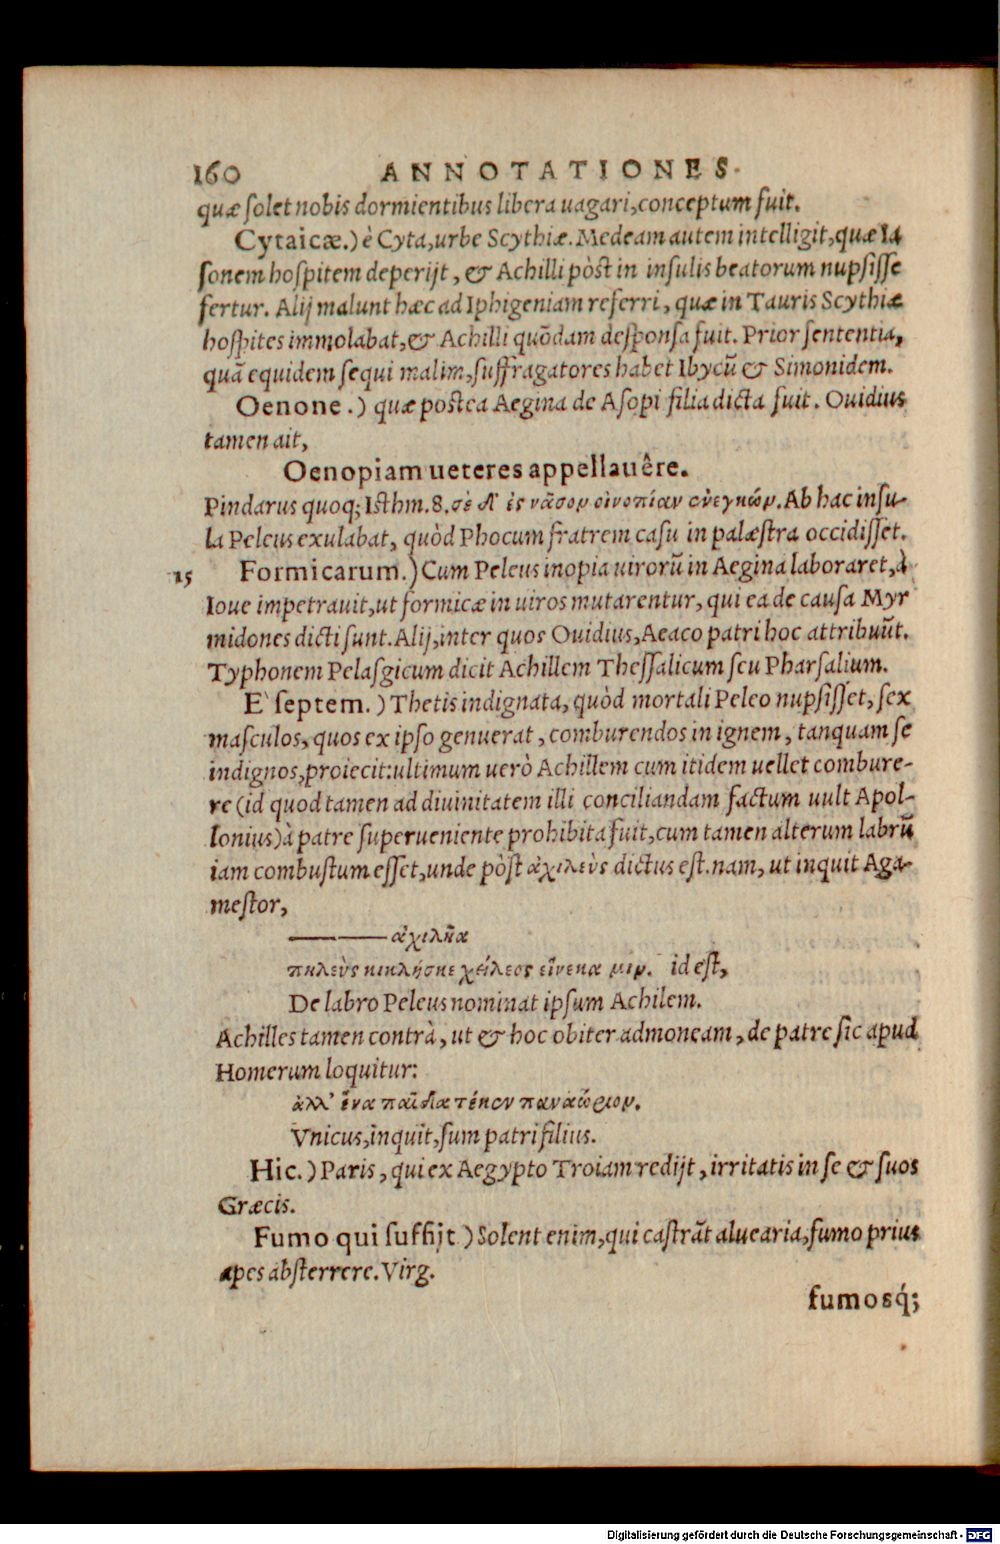 160 ANNOTATIONES.
quæ solet nobis dormientibus libera uagari, conceptum fuit.
Cytaicæ.) è Cyta, urbe Scythiæ. Medeam autem intelligit, quæ Ia
sonem hospitem deperijt, & Achilli pòst in insulis beatorum nupsisse
fertur. Alij malunt hæc ad Iphigeniam referri, quæ in Tauris Scythiæ
hospites immolabat, & Achilli quõdam desponsa fuit. Prior sententia,
quã equidem sequi malim, suffragatores habet Ibycũ & Simonidem.
Oenone.) quæ postea Aegina de Asopi filia dicta fuit. Ouidius
tamen ait,
Oenopiam ueteres appellauêre.
Pindarus quoq; Isthm. 8. σὲ δ' ἐς νᾶσον οἰνοπίαν ἐνεγκών. Ab hac insu-
la Peleus exulabat, quòd Phocum fratrem casu in palæstra occidisset.
15 Formicarum.) Cum Peleus inopia uirorũ in Aegina laboraret, à
Ioue impetrauit, ut formicæ in uiros mutarentur, qui ea de causa Myr
midones dicti sunt. Alij, inter quos Ouidius, Aeaco patri hoc attribuũt.
Typhonem Pelasgicum dicit Achillem Thessalicum seu Pharsalium.
E` septem.) Thetis indignata, quòd mortali Peleo nupsisset, sex
masculos, quos ex ipso genuerat, comburendos in ignem, tanquam se
indignos, proiecit: ultimum uerò Achillem cum itidem uellet combure-
re (id quod tamen ad diuinitatem illi conciliandam factum uult Apol-
lonius) à patre superueniente prohibita fuit, cum tamen alterum labrũ
iam combustum esset, unde pòst ἀχιλεὺς dictus est. nam, ut inquit Aga-
mestor,
——— ἀχιλῆα
πηλεὺς κικλήσκε χείλεος εἵνεκα μιν. id est,
De labro Peleus nominat ipsum Achilem.
Achilles tamen contrà, ut & hoc obiter admoneam, de patre sic apud
Homerum loquitur:
ἀλλ' ἕνα παῖδα τέκον παναώριον.
Vnicus, inquit, sum patri filius.
Hic.) Paris, qui ex Aegypto Troiam redijt, irritatis in se & suos
Græcis.
Fumo qui suffijt.) Solent enim, qui castrãt aluearia, fumo prius
apes absterrere. Virg.
fumosq́;
Digitalisierung gefördert durch die Deutsche Forschungsgemeinschaft - DFG